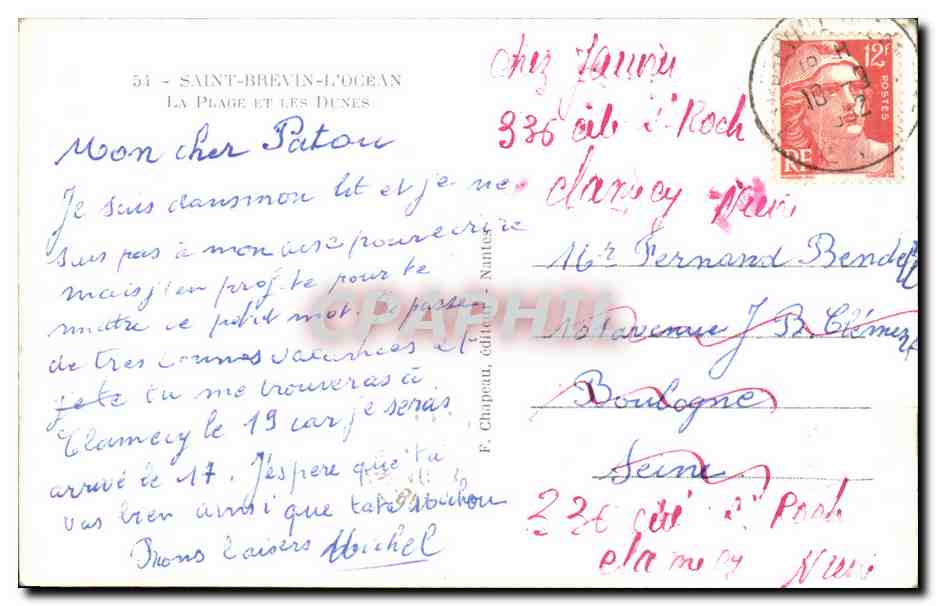 54 - SAINT-BREVIN-L'OCÉAN
LA PLAGE ET LES DUNES
Mon cher Patou
Je suis dans mon lit et je ne
suis pas à mon aise pour ecrire
mais j'en profite pour te
mettre ce petit mot. Je passe
de tres bonnes vacances et
tu me trouveras à
Clamecy le 19 car je serais
arrivé le 17. J'espere que tu
vas bien ainsi que tata Michou
Bons baisers Michel
F. Chapeau, éditeur, Nantes
CPARAMA
chez
336 cité St Roch
Clamecy Nièvre
12F
POSTES
RF
Mr Fernand
avenue J B Clément
Boulogne
Seine
236 cité St Roch
Clamecy Nièvre